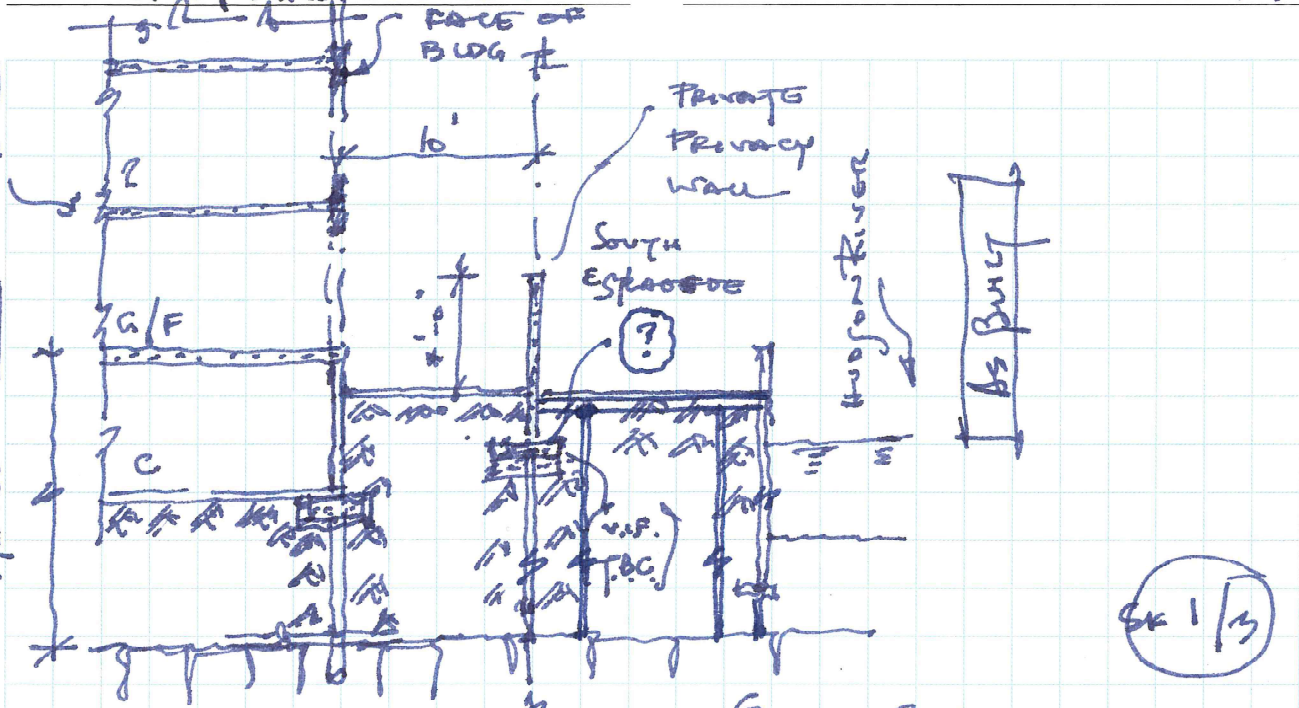 FACE OF
BLDG
PRIVATE
PRIVACY
WALL
10'
2
SOUTH
ESPLANADE
?
HUDSON RIVER
AS BUILT
G/F
C
V.I.F.
T.B.C.
SK 1/3